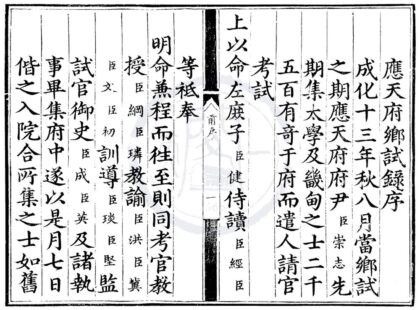 應天府鄉試錄序
成化十三年秋八月當鄉試
之期應天府府尹臣崇志先
期集太學及畿甸之士二千
五百有奇于府而遣人請官
考試
上以命左庶子臣健侍讀臣經臣
前序
一
等祗奉
明命兼程而徃至則同考官教
授臣綱臣璘教諭臣洪臣冀
臣文臣初訓導臣琰臣堅監
試官御史臣成臣英及諸執
事畢集府中遂以是月七日
偕之入院合所集之士如舊